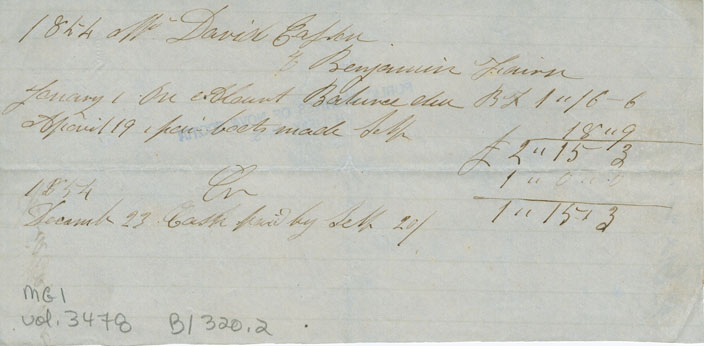 1854 Mr David
to Benjamin
January 1 On Balance due 1 " 16 - 6
April 19 1 pair boots made Self 18 " 9
£ 2 " 15 3
1854 Cr 1 "
Decemb 23 Cash paid by Self 20/
1 " 15 " 3
MG1
vol. 3478 B/320.2